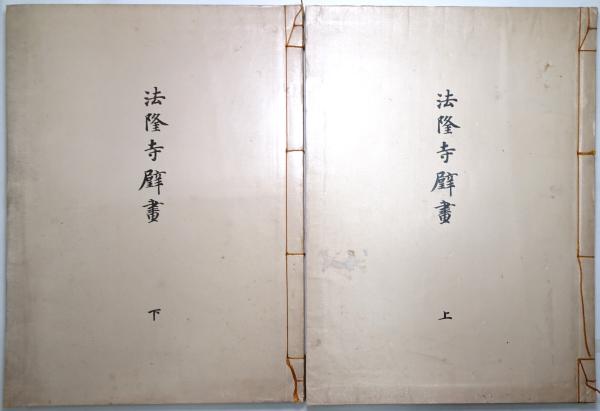 法隆寺壁畫
上
法隆寺壁畫
下